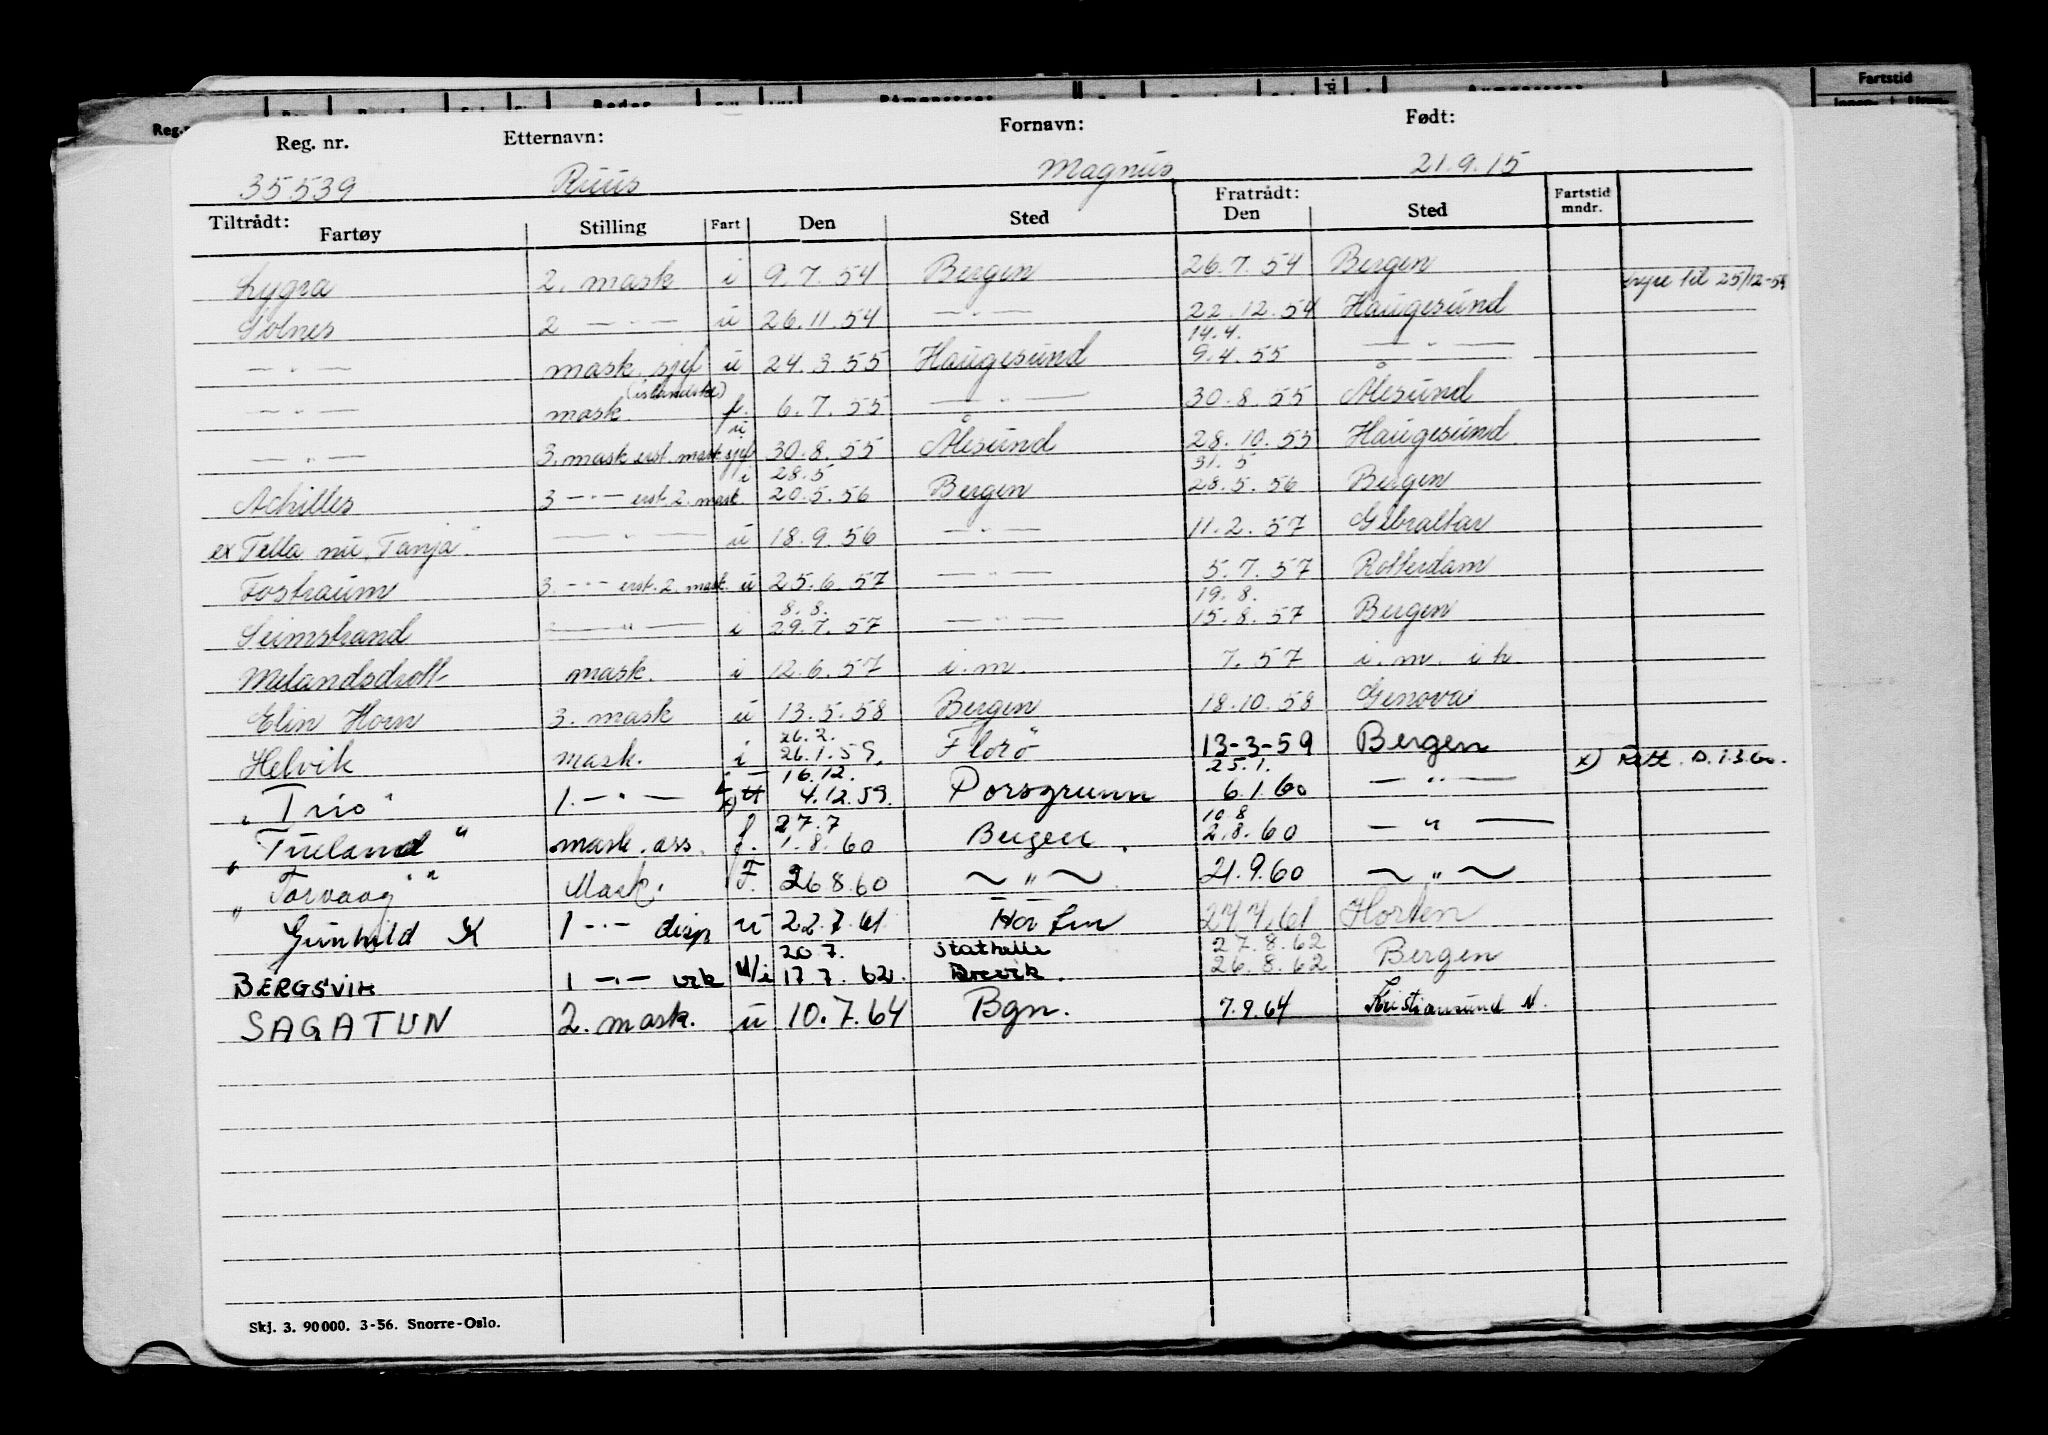 Fartstid
Reg. nr. Etternavn: Fornavn: Født:
35539 Ruus Magnus 21.9.15
Tiltrådt: Fartøy Stilling Fart Den Sted Fratrådt: Den Sted Fartstid mndr.
Lygra 2. mask i 9.7.54 Bergen 26.7.54 Bergen
Solnes 2 —"— u 26.11.54 —"— 22.12.54 Haugesund til 25/12-54
—"— mask. sjef u 24.3.55 Haugesund 14.4. 9.4.55 —"—
—"— mask (islandske) f. 6.7.55 —"— 30.8.55 Ålesund
—"— 3. mask erst. mask sjef u 30.8.55 Ålesund 28.10.55 Haugesund
Achilles 3 —"— erst. 2. mask. i 28.5 20.5.56 Bergen 31.5 28.5.56 Bergen
ex Tella nu "Tanja" —"— u 18.9.56 —"— 11.2.57 Gibraltar
Fostraum 3. —"— erst. 2. mask. u 25.6.57 —"— 5.7.57 Rotterdam
Seimstrand —"— i 8.8. 29.7.57 —"— 19.8. 15.8.57 Bergen
Melandsdrott mask. i 12.6.57 i.m. 7.57 i.m. i h.
Elin Horn 3. mask u 13.5.58 Bergen 18.10.58 Genova
Helvik mask. i 26.2. 26.1.59. Florö 13-3-59 Bergen
"Trio" 1. —"— x) 16.12. 4.12.59. Porsgrunn 25.1. 6.1.60 —"— x) Rett. D. 1.3.60.
"Trueland" mask. ass. f. 27.7 1.8.60 Bergen. 10.8 2.8.60 —"—
"Torvaag" Mask. F. 26.8.60 ~"~ 21.9.60 ~"~
Gunhild K 1 —"— disp u 22.7.61 27.7.61 Horten
BERGSVIK 1 —"— vik u/i 20.7. 17.7.62. Stathelle Brevik. 27.8.62 26.8.62 Bergen
SAGATUN 2. mask. u 10.7.64 Bgn. 7.9.64 Kristiansund N.
Skj. 3. 90000. 3-56. Snorre-Oslo.